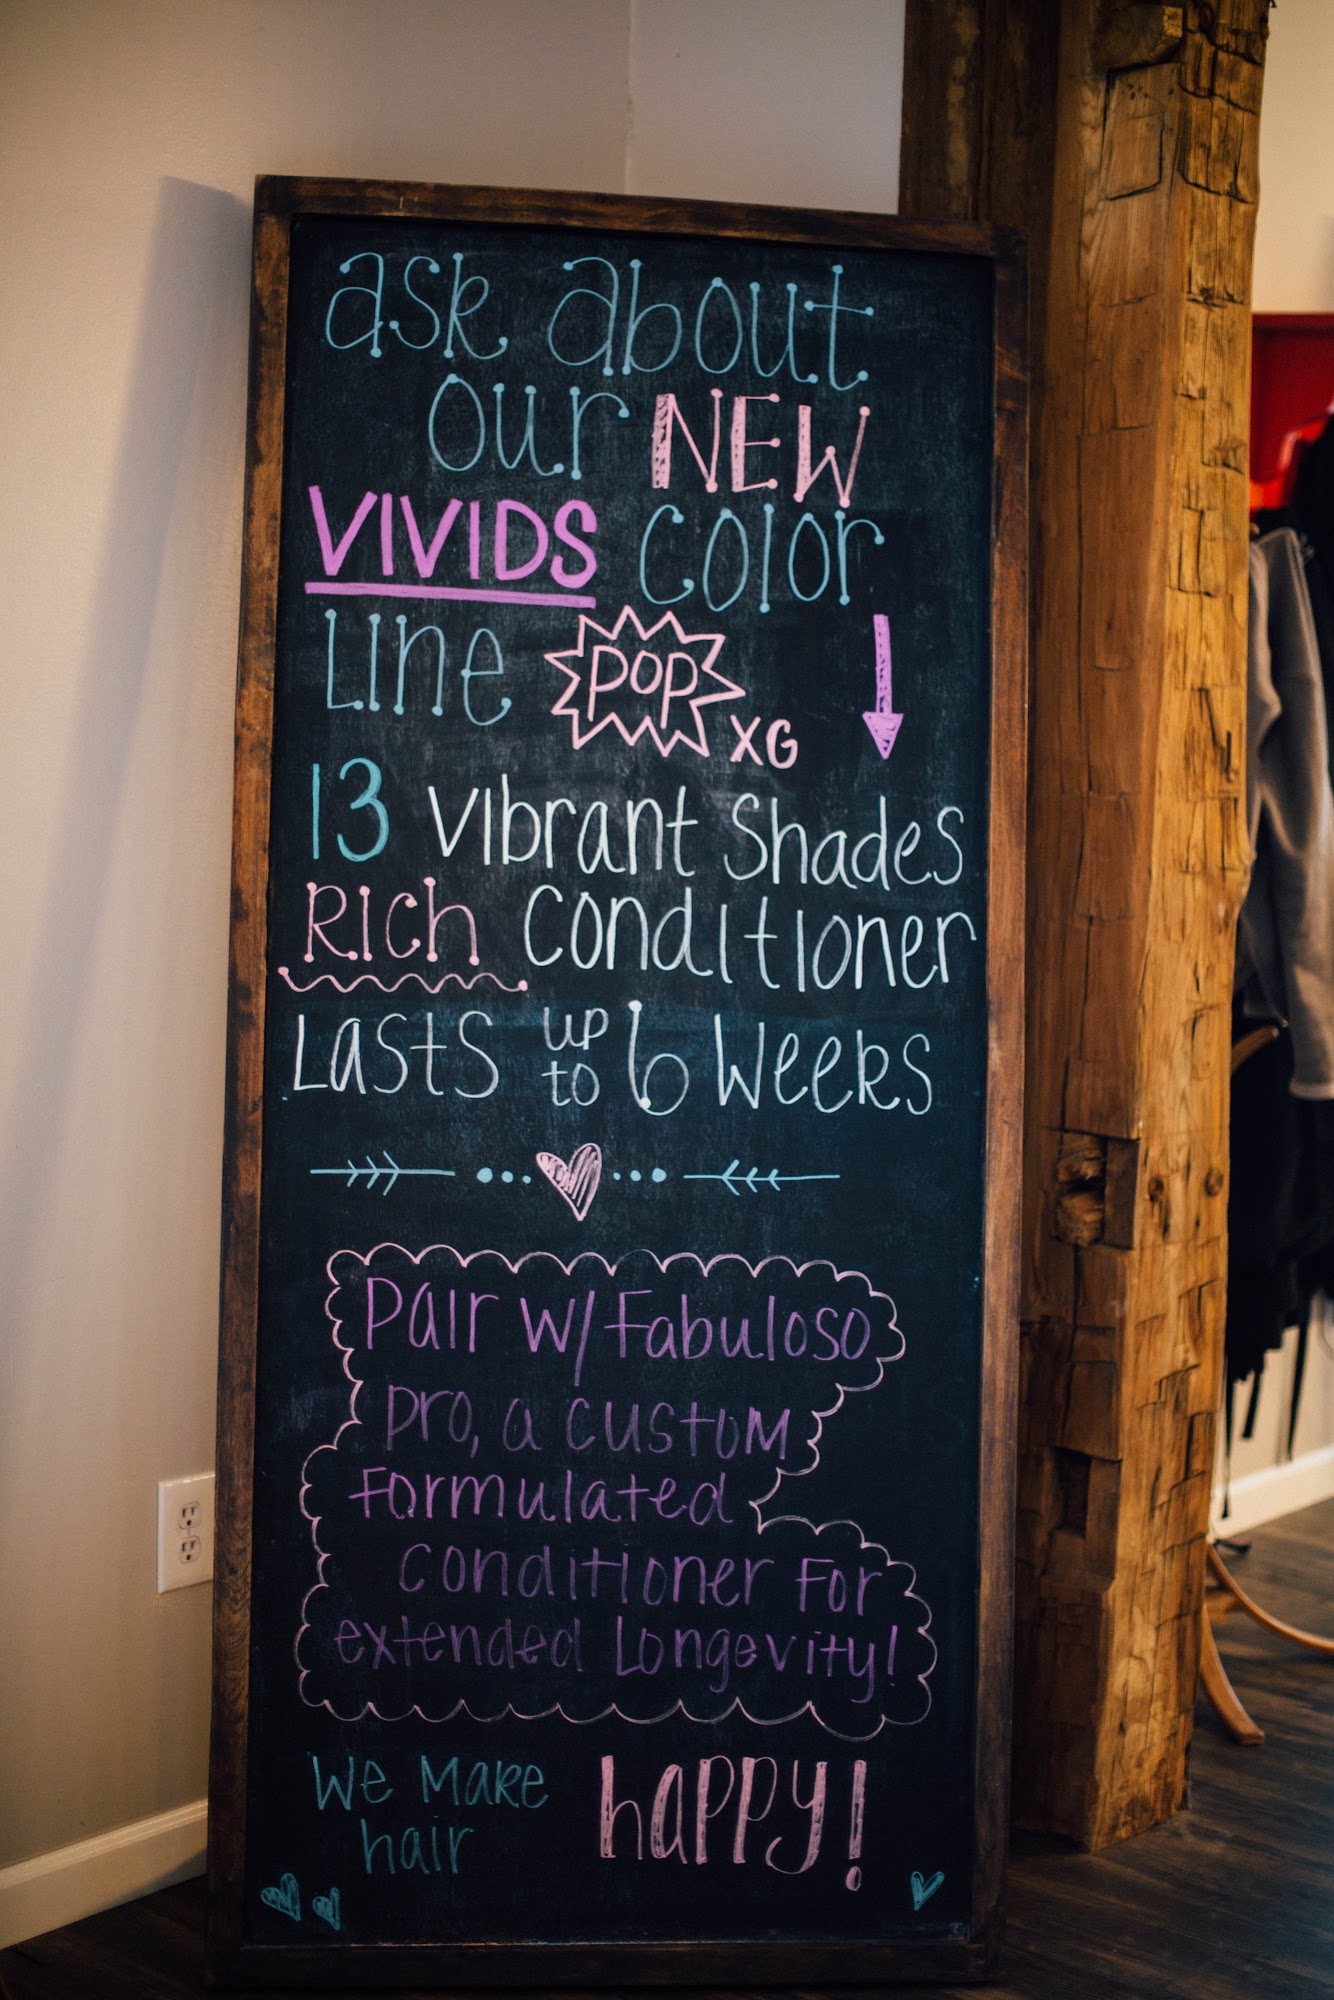 ask about
our NEW
VIVIDS color
Line POP XG
13 vibrant shades
Rich conditioner
Lasts up to 6 weeks
pair w/ Fabuloso
pro, a custom
Formulated
conditioner for
extended Longevity!
We Make happy!
hair